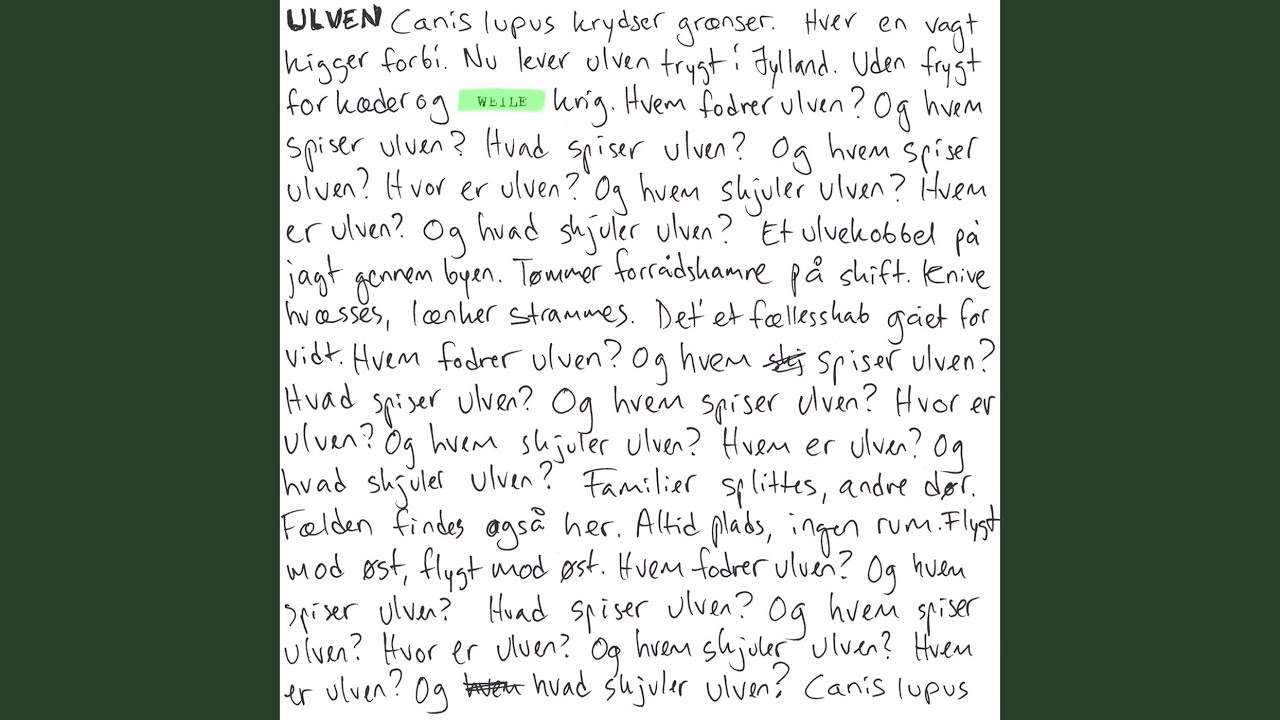 ULVEN Canis lupus krydser grænser. Hver en vagt
kigger forbi. Nu lever ulven trygt i Jylland. Uden frygt
for kæder og WEILE krig. Hvem fodrer ulven? Og hvem
spiser ulven? Hvad spiser ulven? Og hvem spiser
ulven? Hvor er ulven? Og hvem skjuler ulven? Hvem
er ulven? Og hvad skjuler ulven? Et ulvekobbel på
jagt gennem byen. Tømmer forrådskamre på skift. Knive
hvæsses, lænker strammes. Det' et fællesskab gået for
vidt. Hvem fodrer ulven? Og hvem skj spiser ulven?
Hvad spiser ulven? Og hvem spiser ulven? Hvor er
ulven? Og hvem skjuler ulven? Hvem er ulven? Og
hvad skjuler ulven? Familier splittes, andre dør.
Fælden findes også her. Altid plads, ingen rum. Flygt
mod øst, flygt mod øst. Hvem fodrer ulven? Og hvem
spiser ulven? Hvad spiser ulven? Og hvem spiser
ulven? Hvor er ulven? Og hvem skjuler ulven? Hvem
er ulven? Og hvem hvad skjuler ulven? Canis lupus